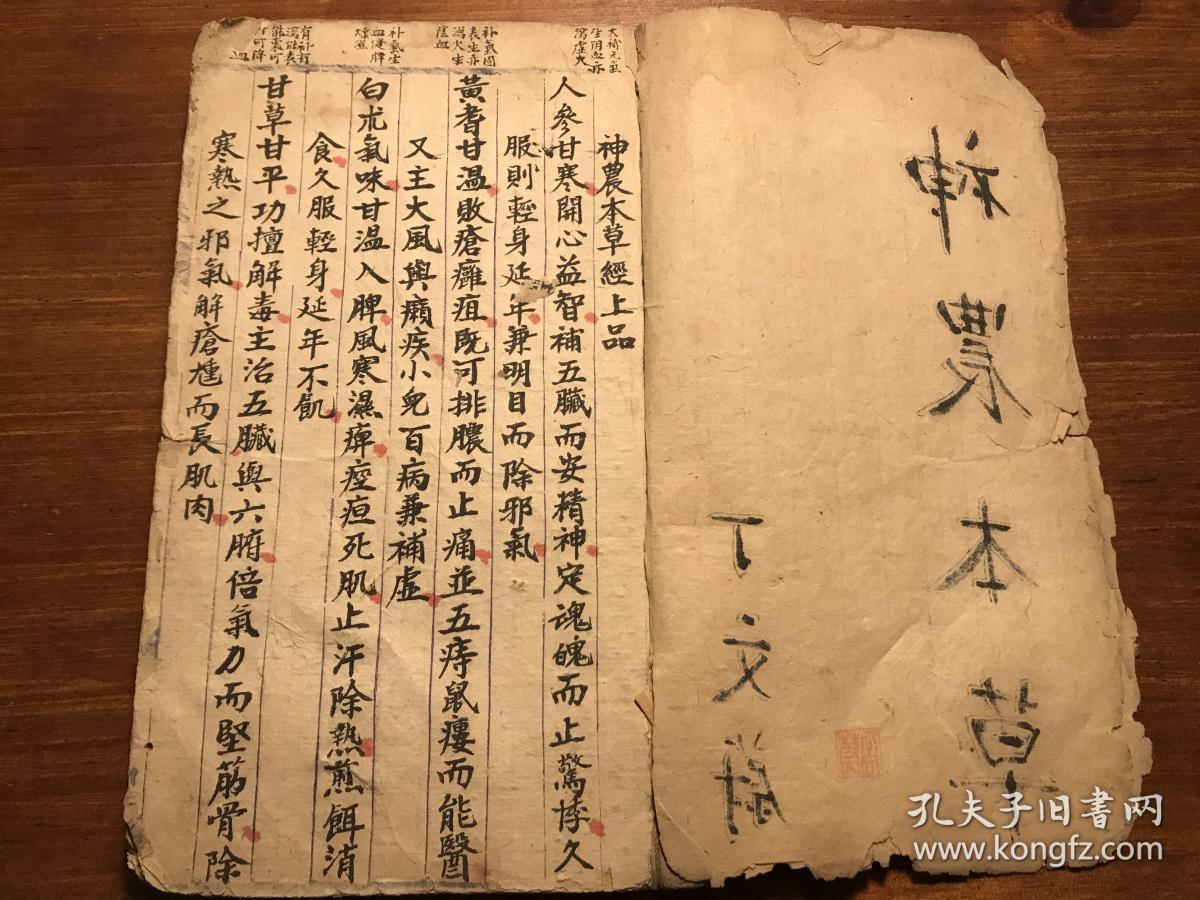 神農本草
丁文
神農本草經上品
人參甘寒開心益智補五臟而安精神定魂魄而止驚悸久
服則輕身延年兼明目而除邪氣
黃耆甘溫敗瘡癰疽既可排膿而止痛並五痔鼠瘻而能醫
又主大風與癩疾小兒百病兼補虛
白朮氣味甘溫入脾風寒濕痺痙疸死肌止汗除熱煎餌消
食久服輕身延年不飢
甘草甘平功擅解毒主治五臟與六腑倍氣力而堅筋骨除
寒熱之邪氣解瘡尰而長肌肉
大補元氣
生阴血亦
瀉虛火
補氣固
表生亦
瀉火生
陰血
补氣生
血健脾
燥濕
孔夫子旧书网
www.kongfz.com